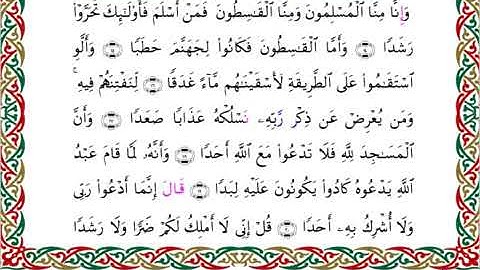 وَإِنَّا مِنَّا ٱلْمُسْلِمُونَ وَمِنَّا ٱلْقَٰسِطُونَ فَمَنْ أَسْلَمَ فَأُوْلَٰٓئِكَ تَحَرَّوْاْ
رَشَدًا وَأَمَّا ٱلْقَٰسِطُونَ فَكَانُواْ لِجَهَنَّمَ حَطَبًا وَأَلَّوِ
ٱسْتَقَٰمُواْ عَلَى ٱلطَّرِيقَةِ لَأَسْقَيْنَٰهُم مَّآءً غَدَقًا لِّنَفْتِنَهُمْ فِيهِ ۚ
وَمَن يُعْرِضْ عَن ذِكْر رَّبِّهِۦ نَسْلُكْهُ عَذَابًا صَعَدًا وَأَنَّ
ٱلْمَسَٰجِدَ لِلَّهِ فَلَا تَدْعُواْ مَعَ ٱللَّهِ أَحَدًا وَأَنَّهُۥ لَمَّا قَامَ عَبْدُ
ٱللَّهِ يَدْعُوهُ كَادُواْ يَكُونُونَ عَلَيْهِ لِبَدًا قَالَ إِنَّمَآ أَدْعُواْ رَبِّى
وَلَآ أُشْرِكُ بِهِۦٓ أَحَدًا قُلْ إِنِّى لَآ أَمْلِكُ لَكُمْ ضَرًّا وَلَا رَشَدًا